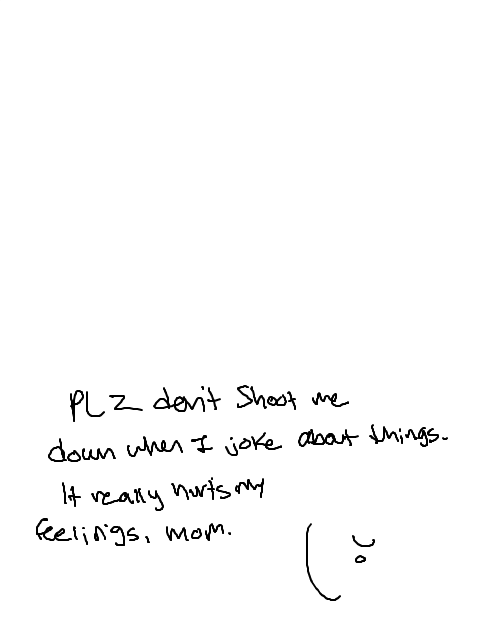 PLZ don't Shoot me
down when I joke about things.
It really hurts my
feelings, mom.